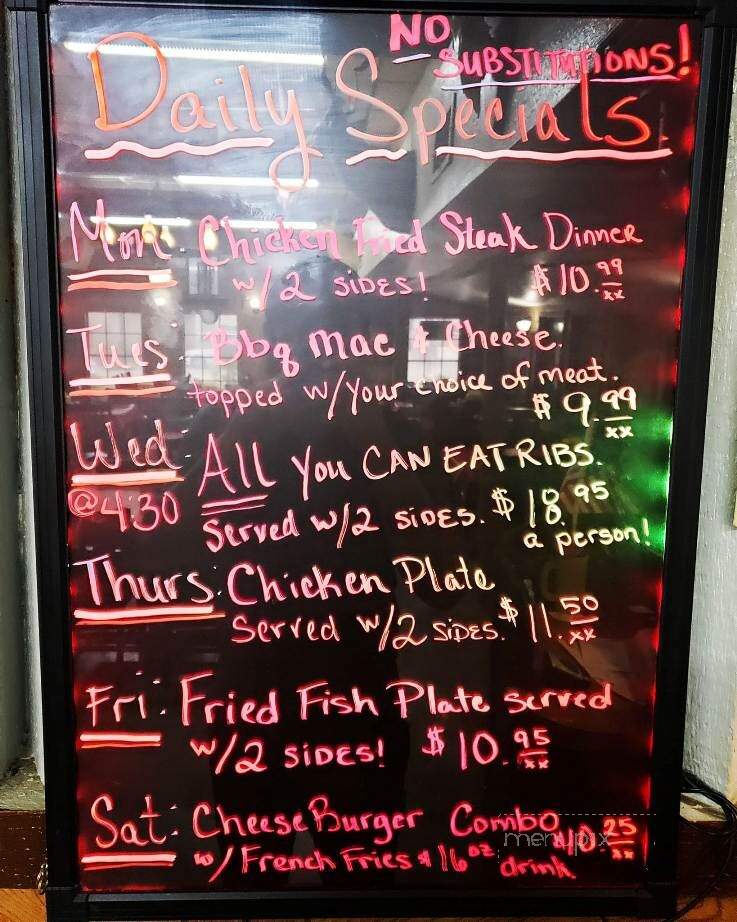 NO
SUBSTITUTIONS!
Daily Specials.
Mon: Chicken Fried Steak Dinner
w/2 SIDES! $10.99/xx
Tues: Bbq Mac & Cheese.
topped w/your choice of meat.
$9.99/xx
Wed All You CAN EAT RIBS.
@4:30 Served w/2 SIDES. $18.95
a person!
Thurs: Chicken Plate
Served w/2 SIDES. $11.50/xx
Fri: Fried Fish Plate served
w/2 SIDES! $10.95/xx
Sat: Cheese Burger Combo
w/French Fries & 16oz drink $10.25/xx
menupix